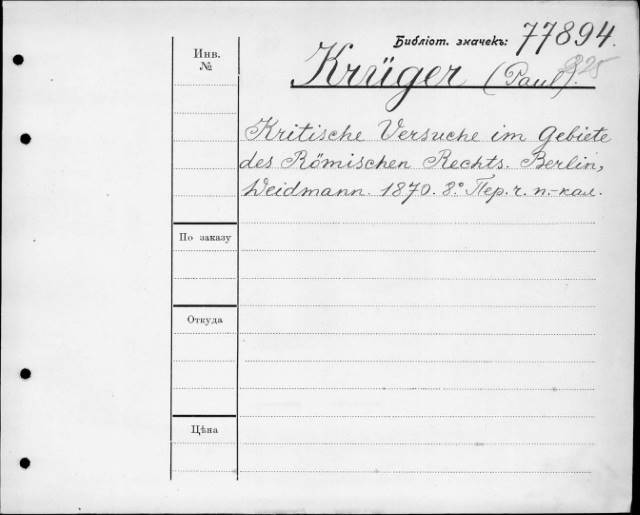 Библіот. значекъ: 77894.
325
Инв.
№
Krüger (Paul).
Kritische Versuche im Gebiete
des Römischen Rechts. Berlin,
Weidmann. 1870. 8.° Пер. ч. п.-кал.
По заказу
Откуда
Цѣна